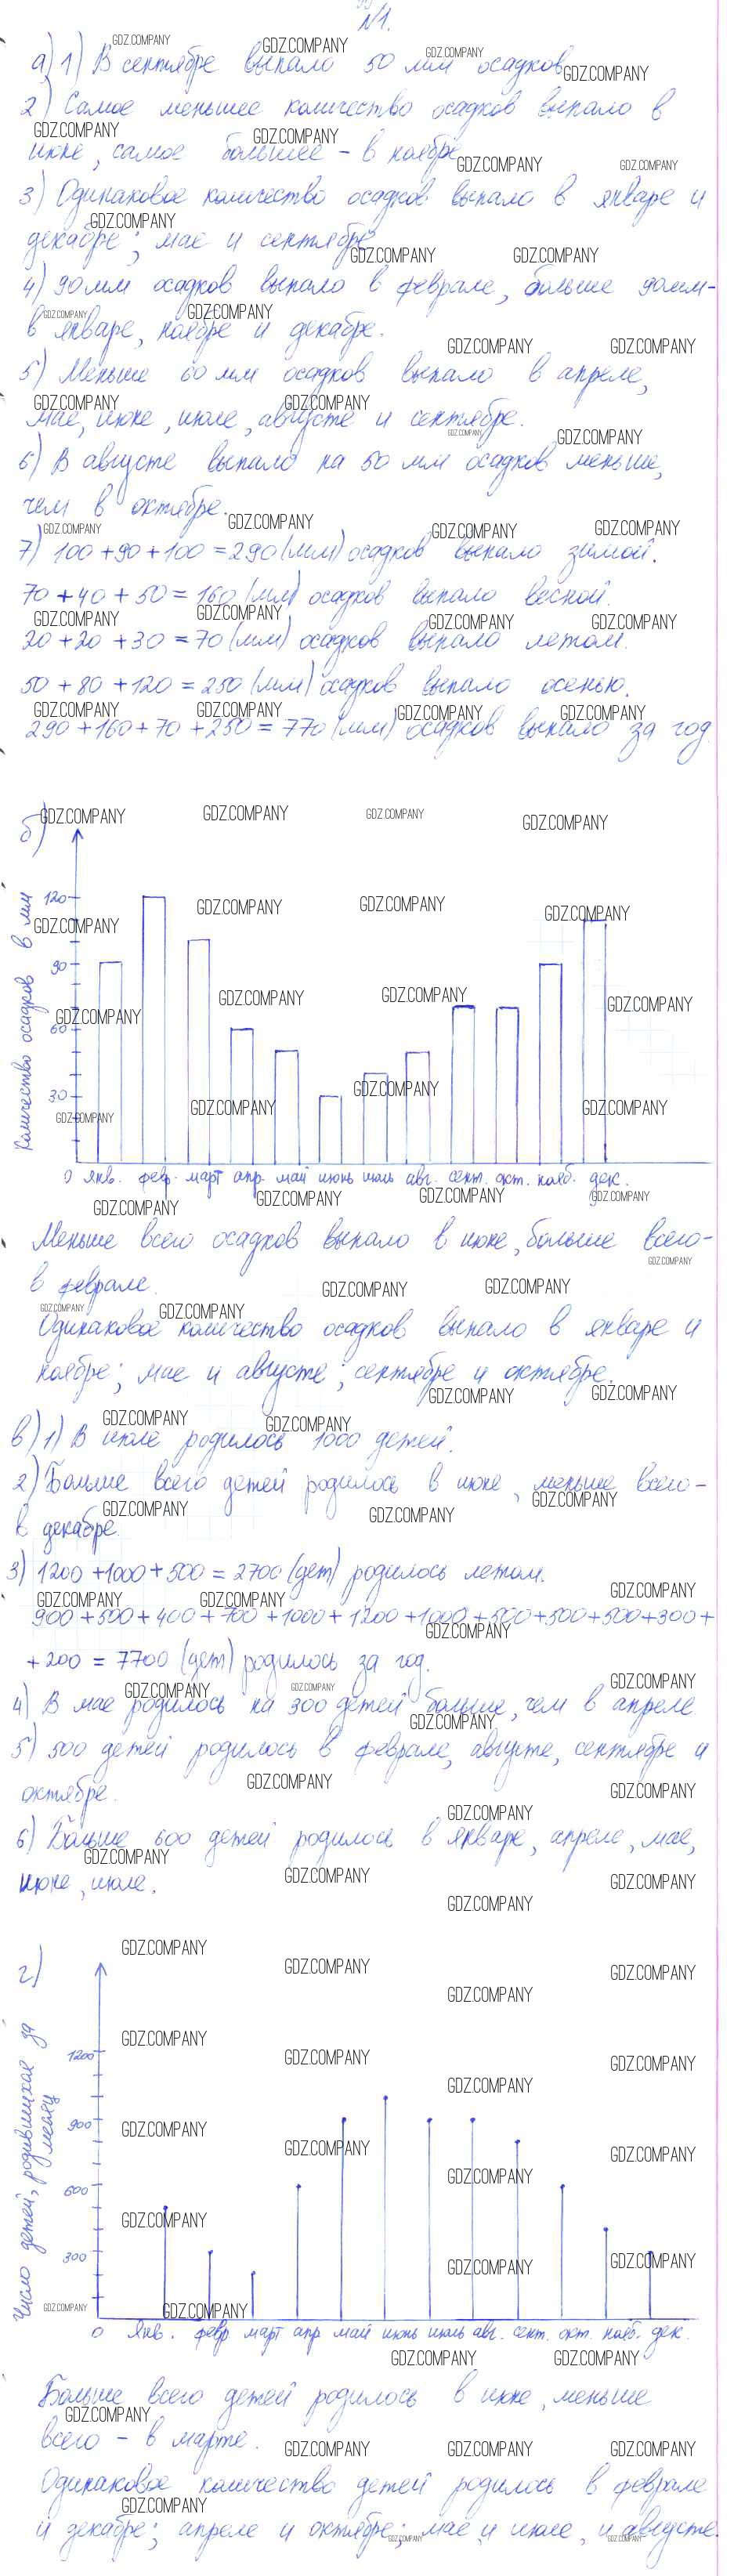 №1.
а) 1) В сентябре выпало 50 мм осадков
2) Самое меньшее количество осадков выпало в
июне, самое большее – в ноябре
3) Одинаковое количество осадков выпало в январе и
декабре; мае и сентябре
4) 90 мм осадков выпало в феврале, больше 90 мм-
в январе, ноябре и декабре.
5) Меньше 60 мм осадков выпало в апреле,
мае, июне, июле, августе и сентябре.
6) В августе выпало на 50 мм осадков меньше,
чем в октябре.
7) 100 + 90 + 100 = 290 (мм) осадков выпало зимой.
70 + 40 + 50 = 160 (мм) осадков выпало весной.
20 + 20 + 30 = 70 (мм) осадков выпало летом.
50 + 80 + 120 = 250 (мм) осадков выпало осенью.
290 + 160 + 70 + 250 = 770 (мм) осадков выпало за год.
б)
Количество осадков в мм
120
90
60
30
0 янв. фев. март апр. май июнь июль авг. сент. окт. нояб. дек.
Меньше всего осадков выпало в июне, больше всего-
в феврале.
Одинаковое количество осадков выпало в январе и
ноябре; мае и августе; сентябре и октябре.
в) 1) В июле родилось 1000 детей.
2) Больше всего детей родилось в июне, меньше всего -
в декабре.
3) 1200 + 1000 + 500 = 2700 (дет) родилось летом.
900 + 500 + 400 + 700 + 1000 + 1200 + 1000 + 500 + 500 + 500 + 300 +
+ 200 = 7700 (дет) родилось за год.
4) В мае родилось на 300 детей больше, чем в апреле
5) 500 детей родилось в феврале, августе, сентябре и
октябре.
6) Больше 600 детей родилось в январе, апреле, мае,
июне, июле.
г)
Число детей, родившихся за
месяц
1200
900
600
300
0 янв. февр март апр май июнь июль авг. сент. окт. нояб. дек.
Больше всего детей родилось в июне, меньше
всего – в марте.
Одинаковое количество детей родилось в феврале
и декабре; апреле и октябре; мае и июле, и августе.
GDZ.COMPANY